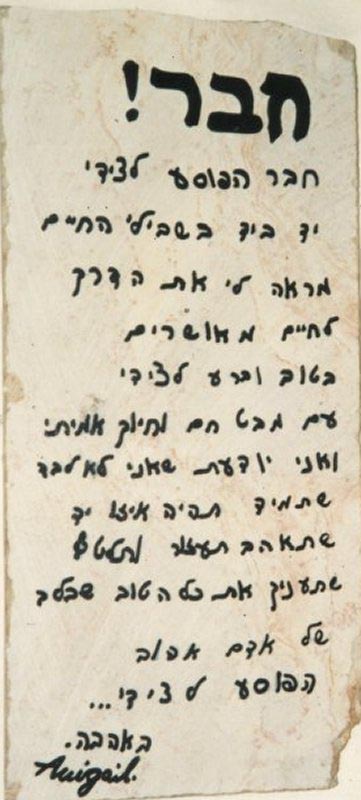 חבר!
חבר הפוסע לצידי
יד ביד בשבילי החיים
מראה לי את הדרך
לחיים מאושרים
בטוב וברע לצידי
עם מבט חם וחיוך אמיתי
ואני יודעת שאני לא לבד
שתמיד תהיה איזו יד
שתאהב תעזור ותלטף
שתעניק את כל הטוב שבלב
של אדם אהוב
הפוסע לצידי...
באהבה.
Avigail.